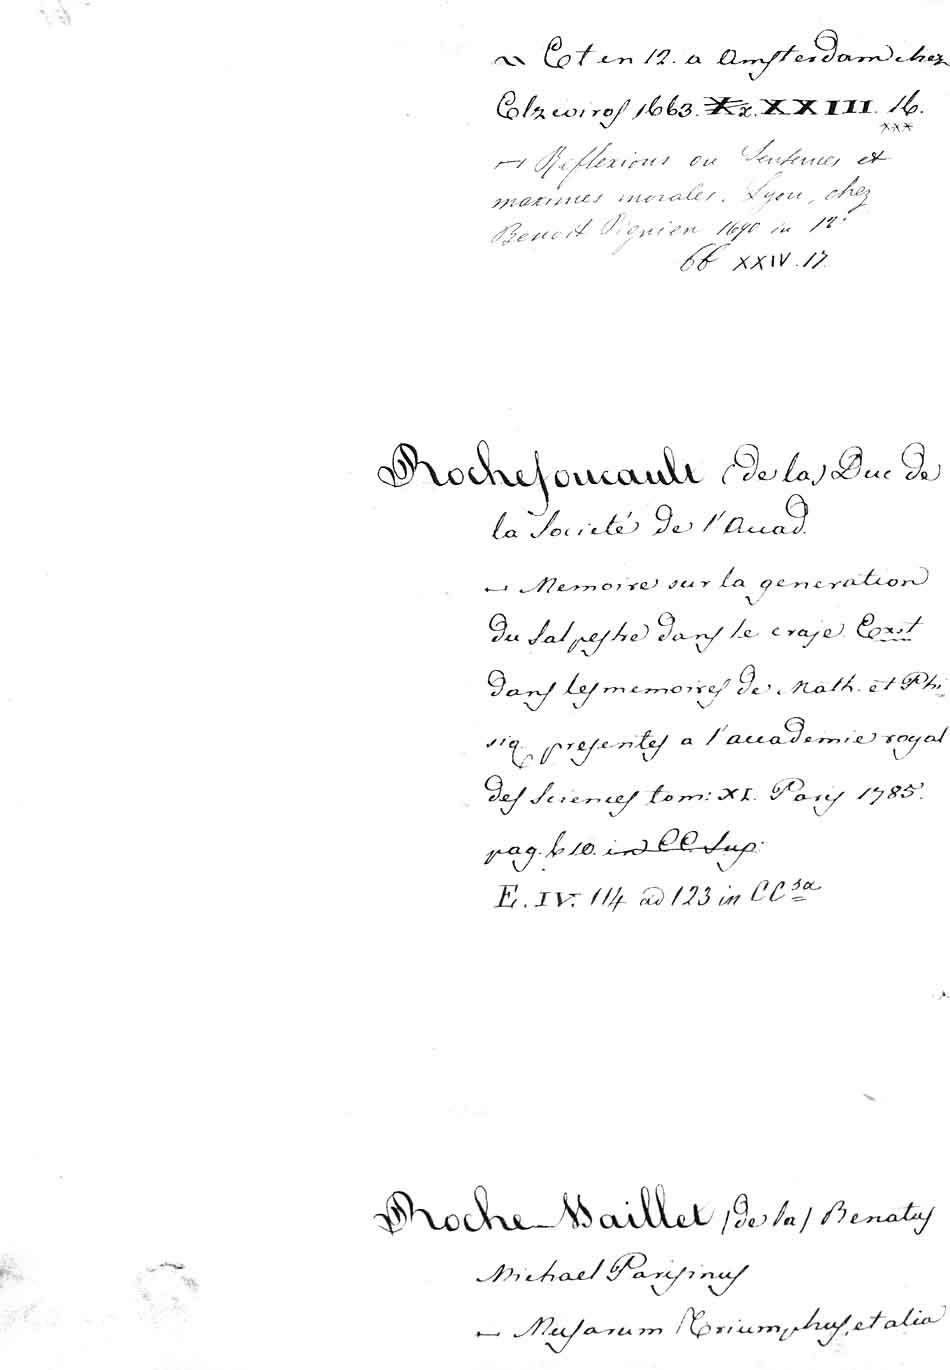 ~ Et en 12. a Amsterdam chez
Elzevirs 1663. XXIII. 16.
— Réflexions ou Sentences et
maximes morales. Lyon, chez
Benoit Vignieu 1690 in 12.
bb XXIV. 17.
Rochefoucault (de la) Duc de
la Societé de l'Acad.
— Memoire sur la generation
du salpestre dans le craje. Exst
dans les memoires de Math. et Phi
siq. presentes a l'accademie royal
des Sciences tom: XI. Paris 1785.
pag. 610. in CC. Sup.
E. IV. 114 ad 123 in CC sa
Roche-Maillet (de la) Renatus
Michael Parisinus
— Musarum Triumphus, et alia